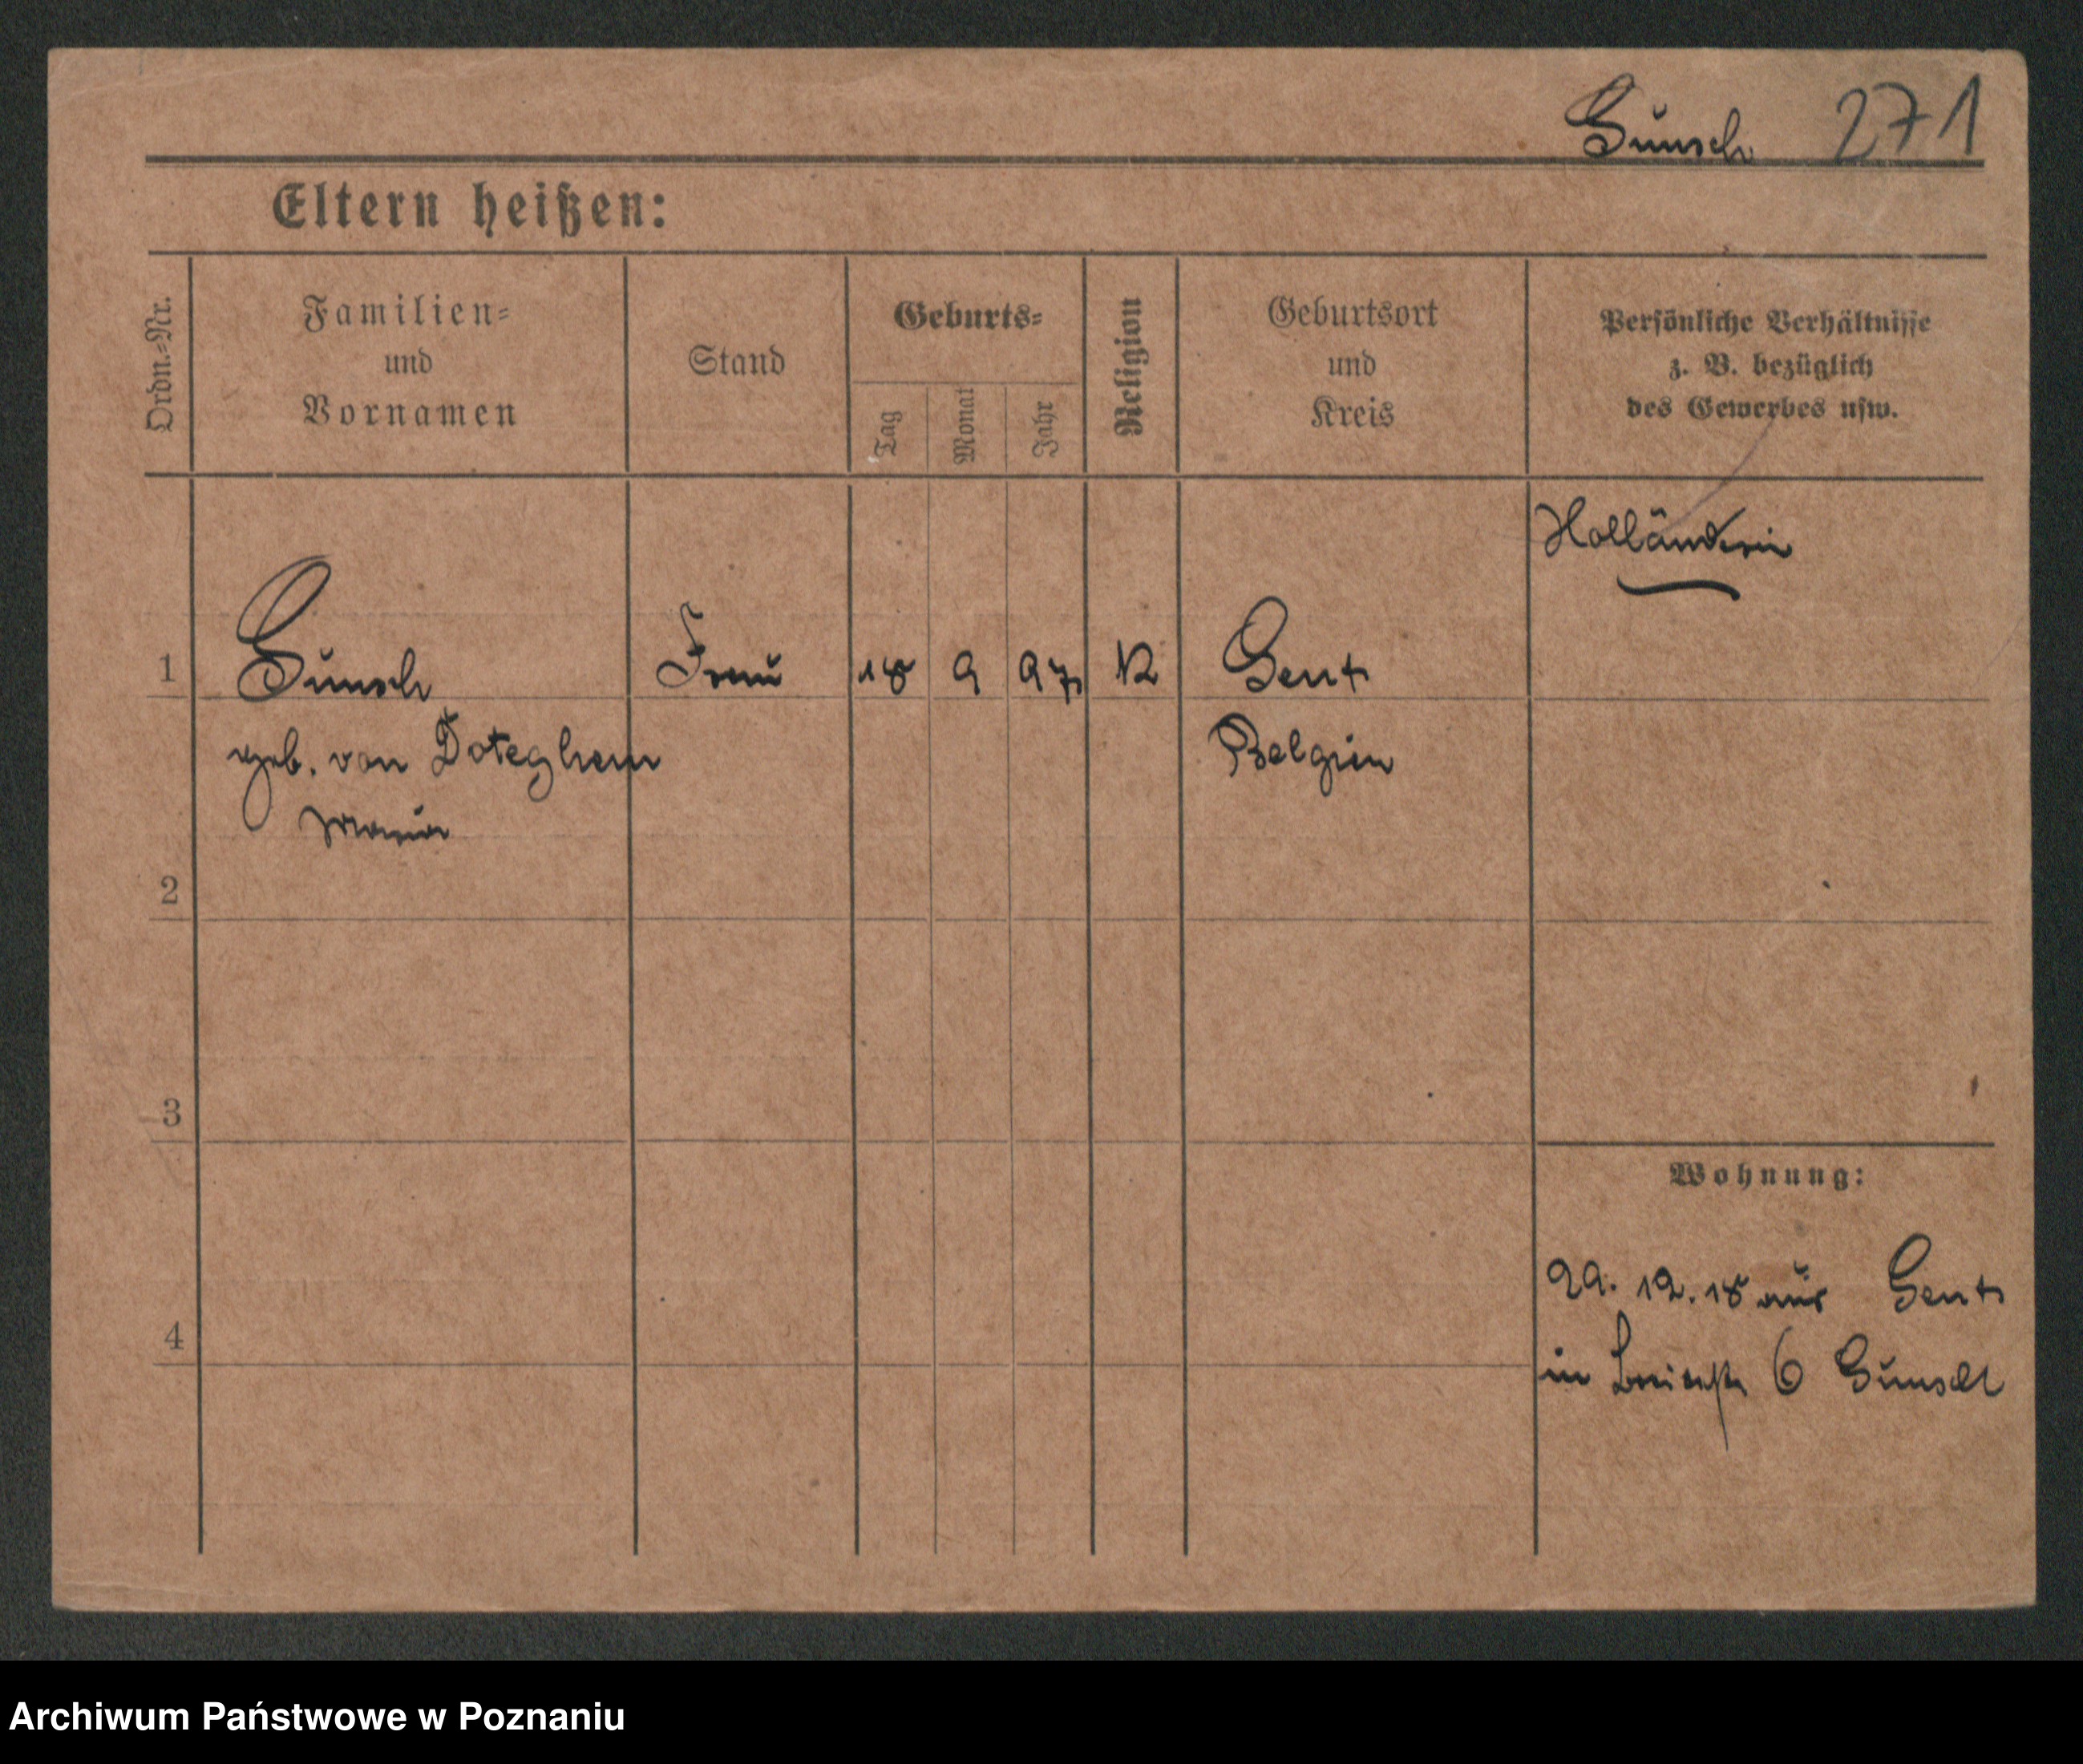 Gunsch 271
Eltern heißen:
Ordn.-Nr.
Familien-
und
Vornamen
Stand
Geburts-
Tag
Monat
Jahr
Religion
Geburtsort
und
Kreis
Persönliche Verhältnisse
z. B. bezüglich
des Gewerbes usw.
Holländerin
1 Gunsch Frau 18 9 97 K Gent
geb. von Doteghem Belgien
Maria
2
3
Wohnung:
29. 12. 18 aus Gent
4
in 6 Gunsch
Archiwum Państwowe w Poznaniu